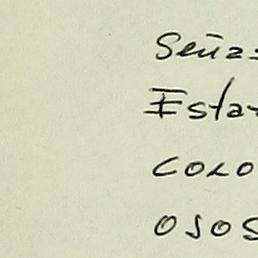 Seña
Esta
colo
ojos